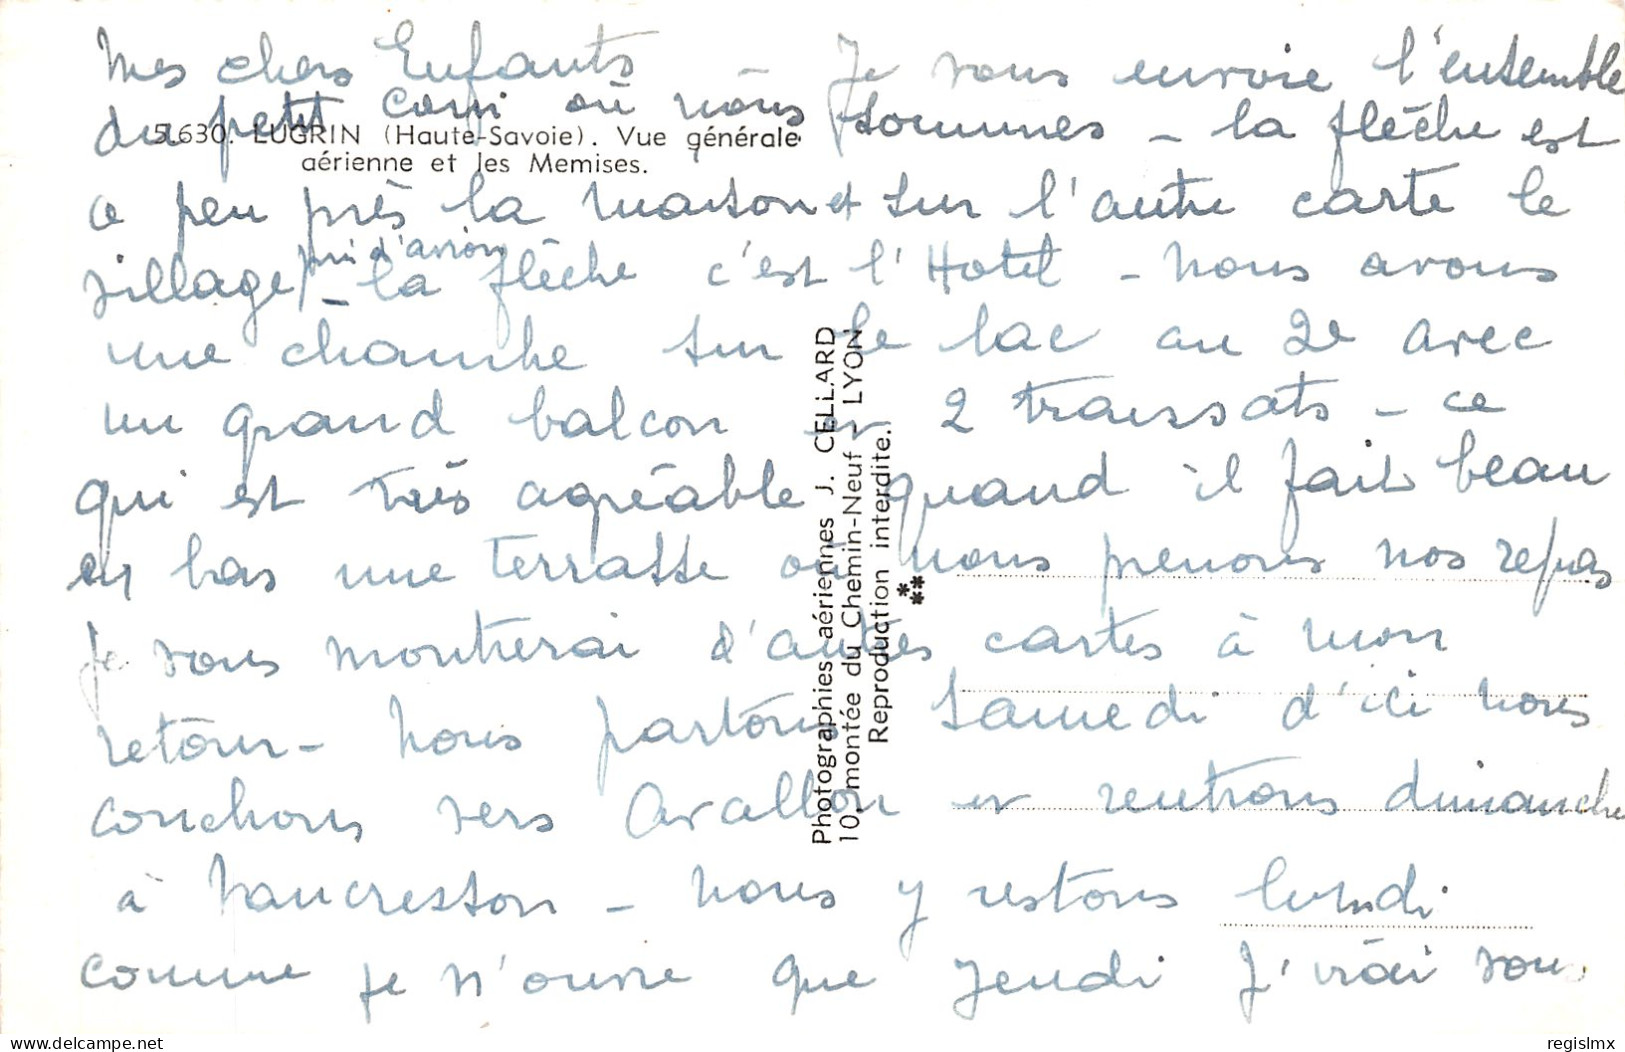 Mes chers Enfants – Je vous envoie l'ensemble
du petit coin où nous sommes – la flèche est
5.630. LUGRIN (Haute-Savoie). Vue générale
aérienne et les Memises.
a peu près la maison et sur l'autre carte le
village pris d'avion – la flèche c'est l'Hotel – nous avons
une chambre sur le lac au 2e avec
un grand balcon et 2 transats – ce
qui est très agréable quand il fait beau
en bas une terrasse où nous prenons nos repas
Je vous montrerai d'autres cartes à mon
retour – nous partons samedi d'ici nous
couchons vers Avallon et rentrons dimanche
à Vaucresson – nous y restons lundi
comme je n'ouvre que jeudi j'irai vous
Photographies aériennes J. CELLARD
10, montée du Chemin-Neuf - LYON
Reproduction interdite.
delcampe.net
regislmx